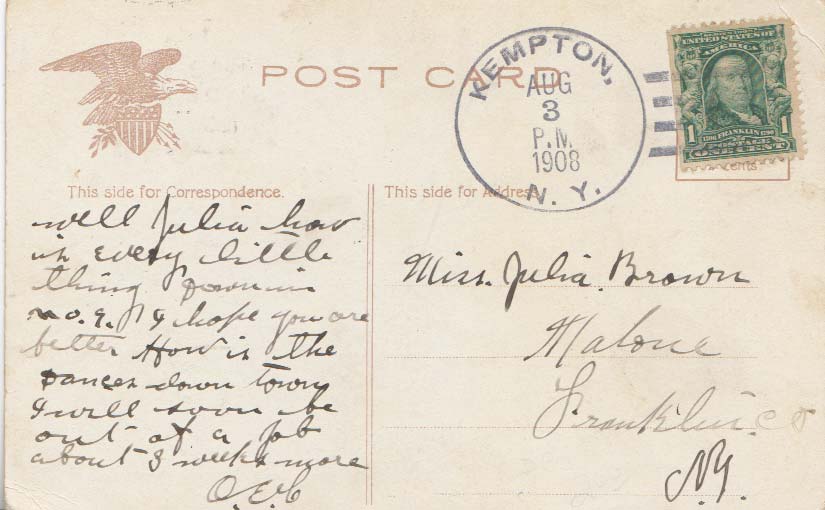 POST CARD
KEMPTON,
AUG
3
P.M.
1908
N. Y.
UNITED STATES OF
AMERICA
1 FRANKLIN 1
POSTAGE
ONE CENT
This side for Correspondence.
This side for Address
well Julia how
is every little
thing down in
no. 9. I hope you are
better How is the
Dances down town
I will soon be
out of a job
about 3 weeks more
O.E.C
Miss. Julia. Brown
Malone
Franklin. co
N.Y.